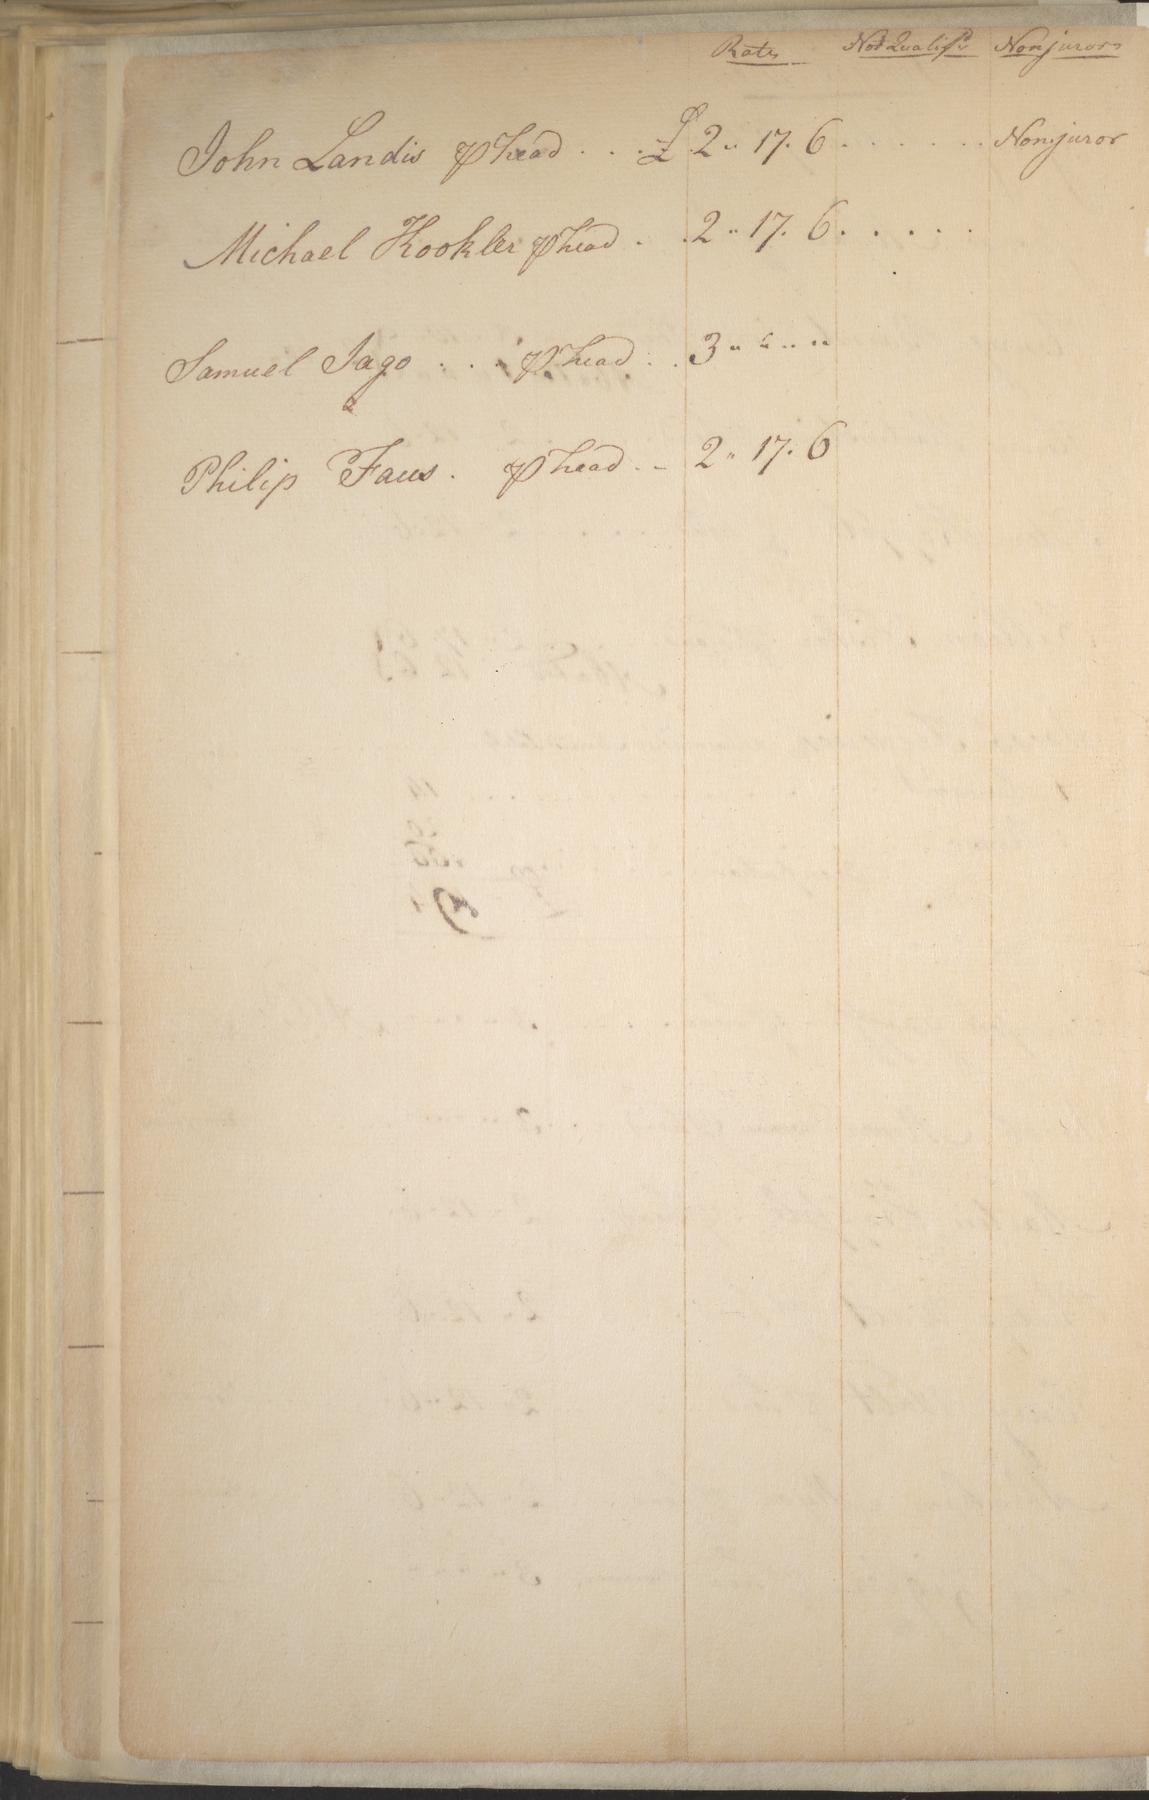 Rates Not Qualify'd Nonjurors
John Landis ⅌ head . . . £ 2 .. 17 . 6 . . . . . . Nonjuror
Michael Kookler ⅌ head . . 2 .. 17 . 6 . . . . .
Samuel Jago . . . ⅌ head . . 3 .. " .. ..
Philip Faus . ⅌ head . . 2 .. 17 . 6